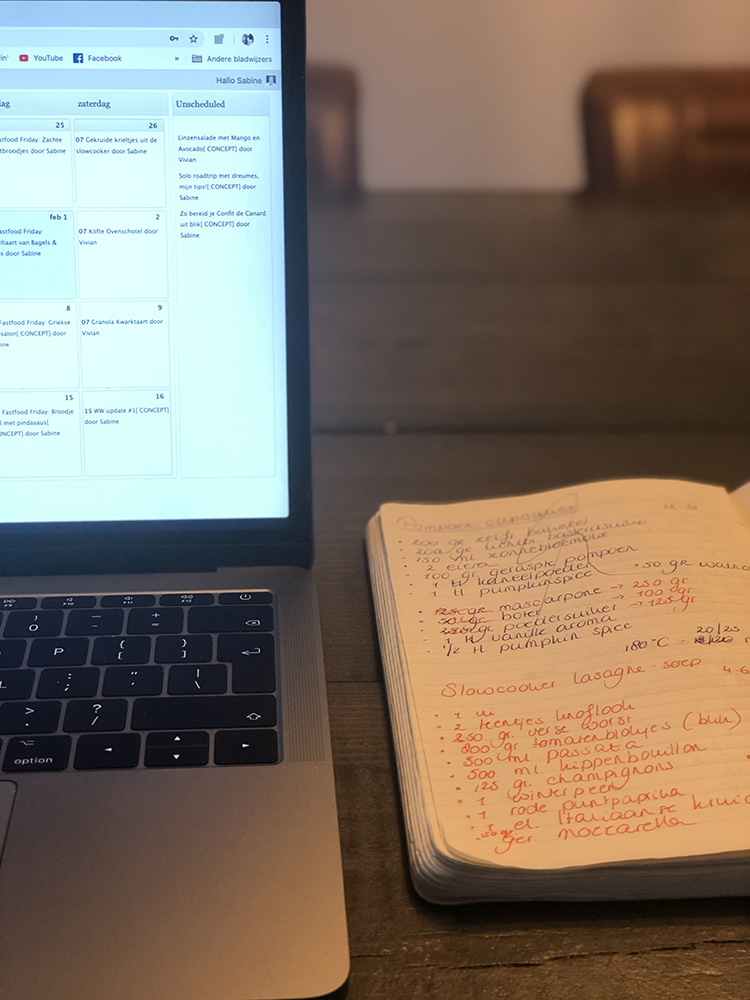 YouTube Facebook » Andere bladwijzers
Hallo Sabine
zaterdag Unscheduled
25
Friday: Zachte
door Sabine
26
07 Gekruide krieltjes uit de
slowcooker door Sabine
feb 1
Friday:
van Bagels &
door Sabine
2
07 Kofte Ovenschotel door
Vivian
8
Fastfood Friday: Griekse
[ CONCEPT] door
9
07 Granola Kwarktaart door
Vivian
15
Fastfood Friday: Broodje
met pindasaus[
CONCEPT] door Sabine
16
15 WW update #1[ CONCEPT]
door Sabine
Linzensalade met Mango en
Avocado[ CONCEPT] door
Vivian
Solo roadtrip met dreumes,
mijn tips![ CONCEPT] door
Sabine
Zo bereid je Confit de Canard
uit blik[ CONCEPT] door
Sabine
F10 F11 F12
) 0 _ - + =
P { [ } ]
: ; " ' | \
> . ? /
option
Pompoen cupcakes
200 gr zelfr. bakmeel
200 gr lichte basterdsuiker
150 ml zonnebloemolie
2 eieren
100 gr geraspte pompoen
1 tl kaneelpoeder • 50 gr
1 tl pumpkinspice
125 gr mascarpone → 250 gr
50 gr boter → 100 gr
poedersuiker → 125 gr
1 tl vanille aroma
1/2 tl pumpkin spice
180°C - 20/25
Slowcooker lasagne-soep 4-6
• 1 ui
• 2 teentjes knoflook
• 250 gr. verse worst
• 800 gr tomatenblokjes (blik)
• 500 ml passata
• 500 ml. kippenbouillon
• 125 gr. champignons
• 1 winterpeen
• 1 rode puntpaprika
• 1 el. Italiaanse
ger. mozzarella